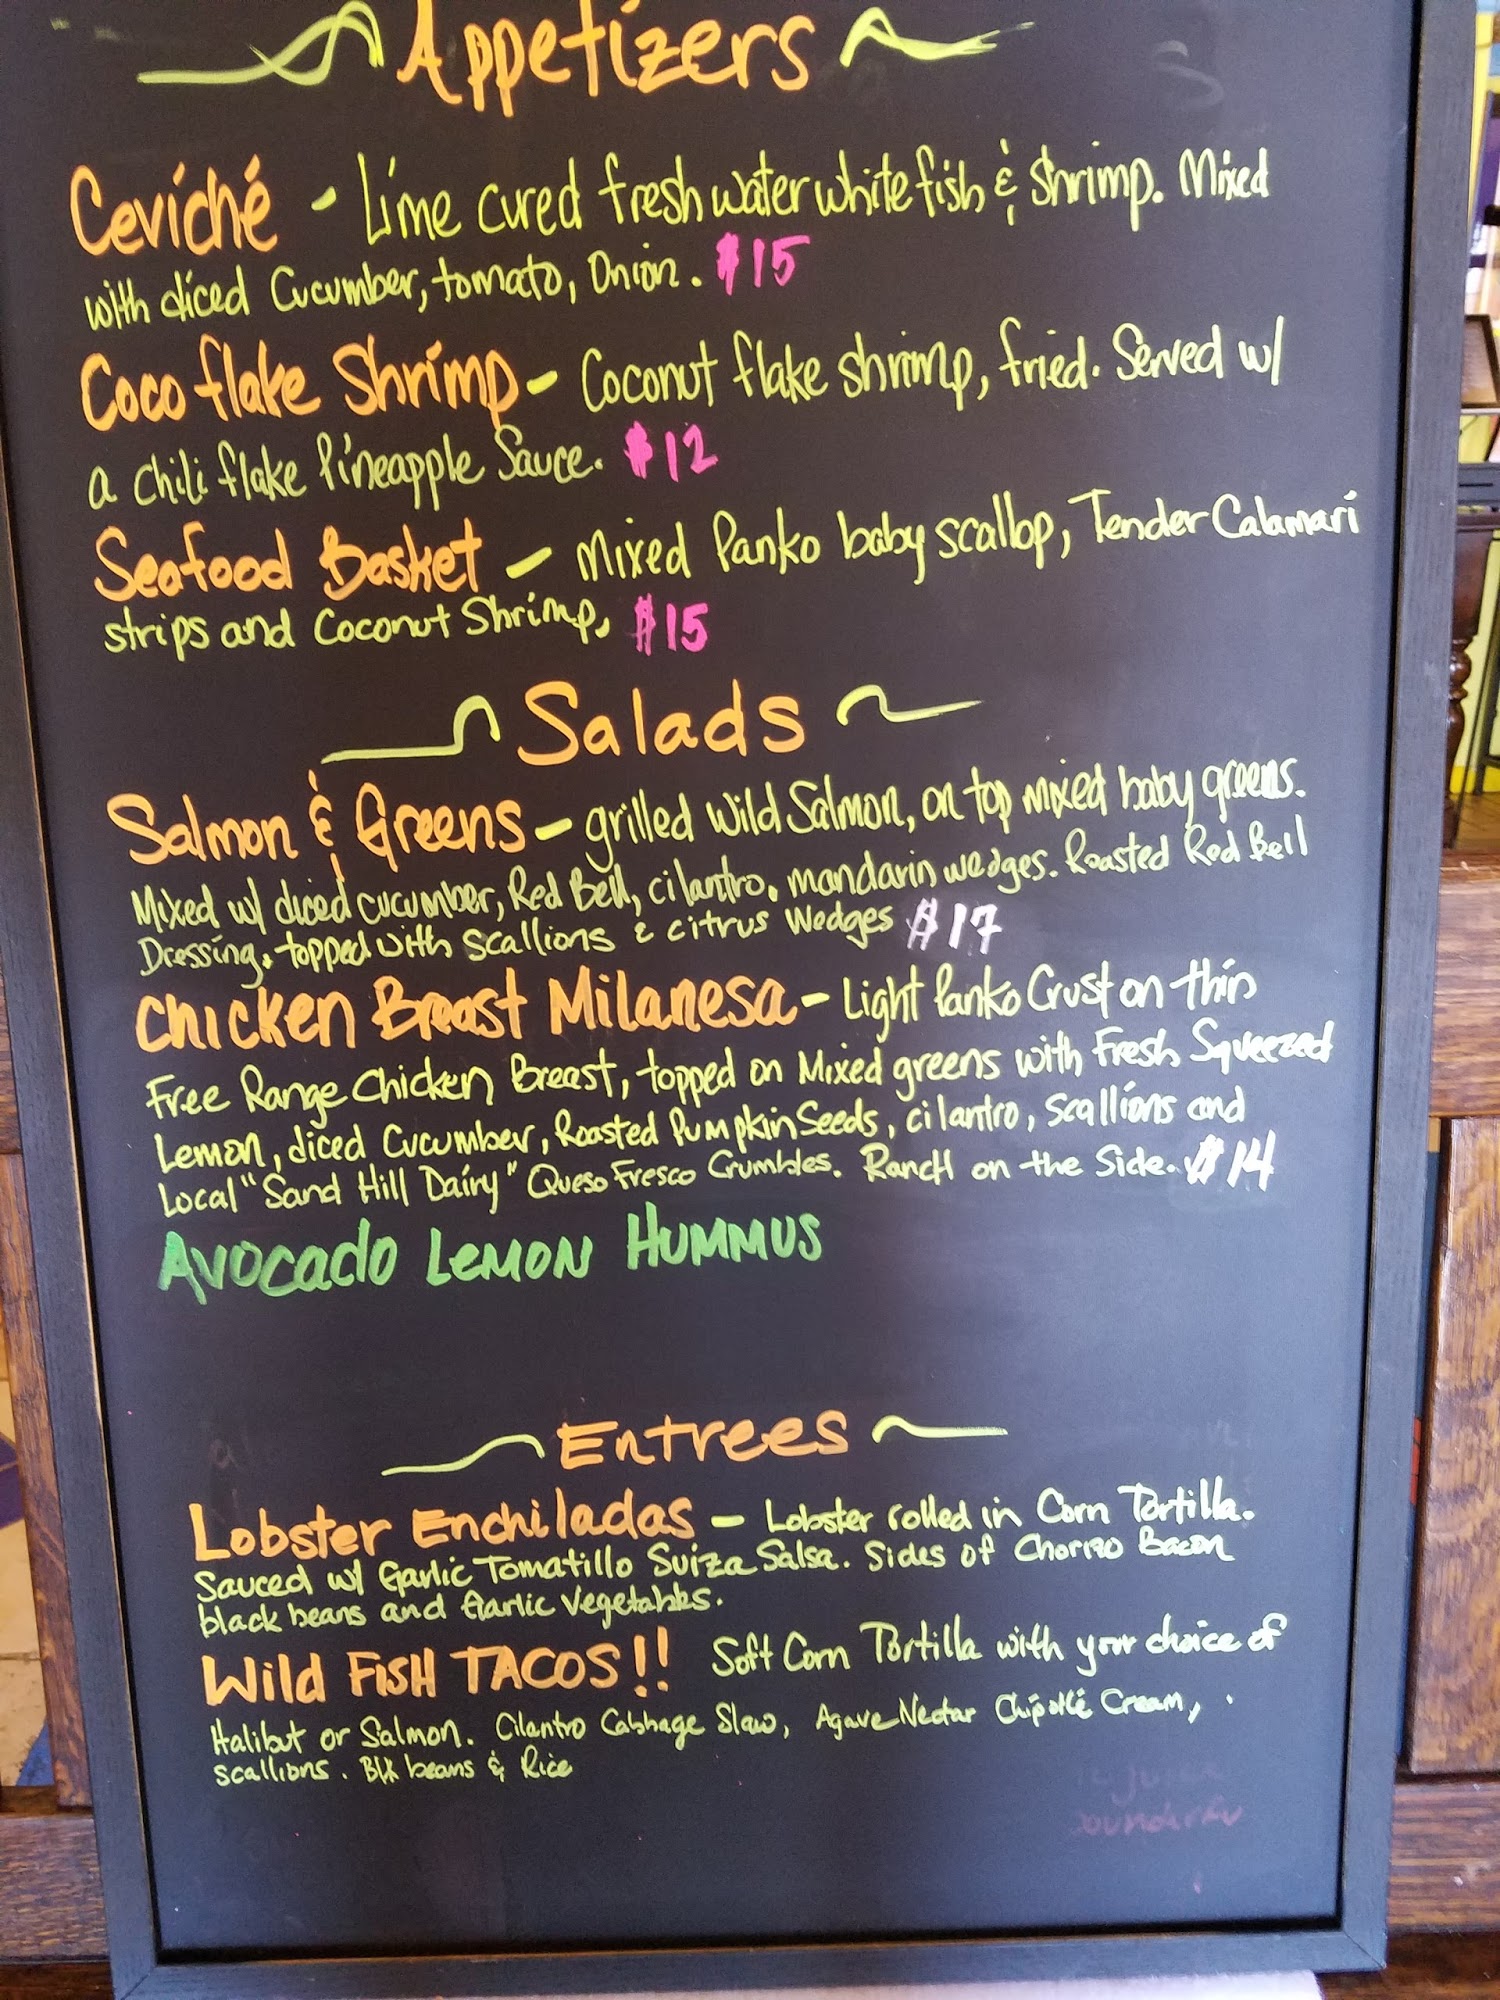 Appetizers
Ceviché - Lime cured fresh water white fish & Shrimp. Mixed
with diced Cucumber, tomato, Onion. $15
Coco flake Shrimp - Coconut flake shrimp, fried. Served w/
a chili flake Pineapple Sauce. $12
Seafood Basket - Mixed Panko baby scallop, Tender Calamari
strips and Coconut Shrimp, $15
Salads
Salmon & Greens - grilled wild Salmon, on top mixed baby greens.
Mixed w/ diced cucumber, Red Bell, cilantro, mandarin wedges. Roasted Red Bell
Dressing, topped with scallions & citrus wedges $17
Chicken Breast Milanesa - Light Panko Crust on thin
Free Range Chicken Breast, topped on Mixed greens with Fresh Squeezed
Lemon, diced Cucumber, Roasted Pumpkin Seeds, cilantro, scallions and
Local "Sand Hill Dairy" Queso Fresco Crumbles. Ranch on the Side. $14
Avocado Lemon Hummus
Entrees
Lobster Enchiladas - Lobster rolled in Corn Tortilla.
Sauced w/ Garlic Tomatillo Suiza Salsa. Sides of Chorizo Bacon
black beans and Garlic Vegetables.
Wild FISH TACOS!! Soft Corn Tortilla with your choice of
Halibut or Salmon. Cilantro Cabbage Slaw, Agave Nectar Chipotlé Cream,
scallions. Blk beans & Rice